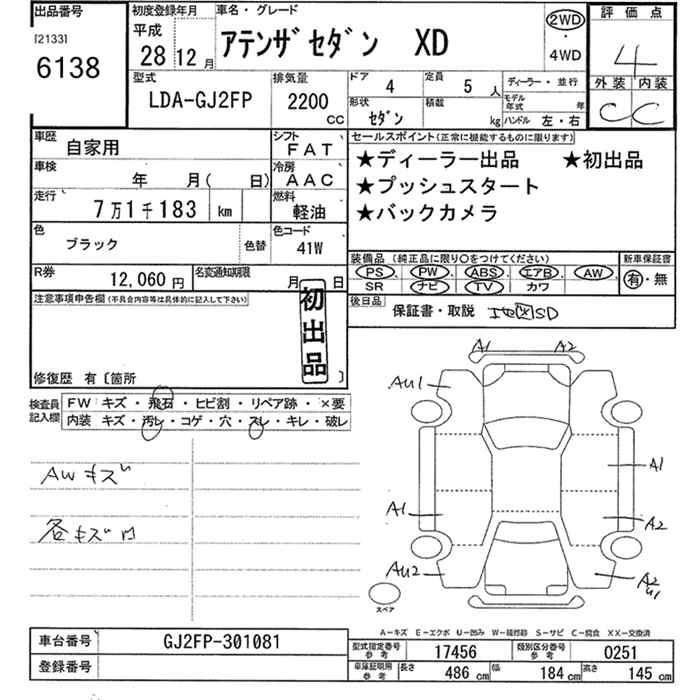 出品番号
[2133]
6138
初度登録年月
平成
28 12 月
車名・グレード
アテンザセダン XD
2WD
・
4WD
評価点
4
外装 内装
C C
型式
LDA-GJ2FP
排気量
2200
CC
ドア 4
定員 5 人
形状 セダン
積載 kg
ディーラー・並行
モデル年式 年
ハンドル 左・右
車歴 自家用
シフト FAT
車検 年 月( 日)
冷房 AAC
走行 7万1千183 km
燃料 軽油
色 ブラック
色替
色コード 41W
R券 12,060 円
名変通知期限 月 日
セールスポイント(正常に機能するものに限ります)
★ディーラー出品 ★初出品
★プッシュスタート
★バックカメラ
装備品 (純正品に限り○をつけてください)
PS PW ABS エアB AW
SR ナビ TV カワ
新車保証書
有・無
後日品
保証書・取説 SD
注意事項申告欄(不具合内容等は具体的に記入して下さい)
初出品
修復歴 有〔箇所 〕
検査員記入欄
FW キズ・飛石・ヒビ割・リペア跡・×要
内装 キズ・汚レ・コゲ・穴・スレ・キレ・破レ
AWキズ
各キズ凹
A1 A2
AU1
A1
A1
A2
AU2
A2
U1
スペア
A-キズ E-エクボ U-凹み W-補修跡 S-サビ C-腐食 XX-交換済
車台番号 GJ2FP-301081
登録番号
型式指定番号参考 17456
類別区分番号参考 0251
車庫証明用参考 長さ 486 cm 幅 184 cm 高さ 145 cm